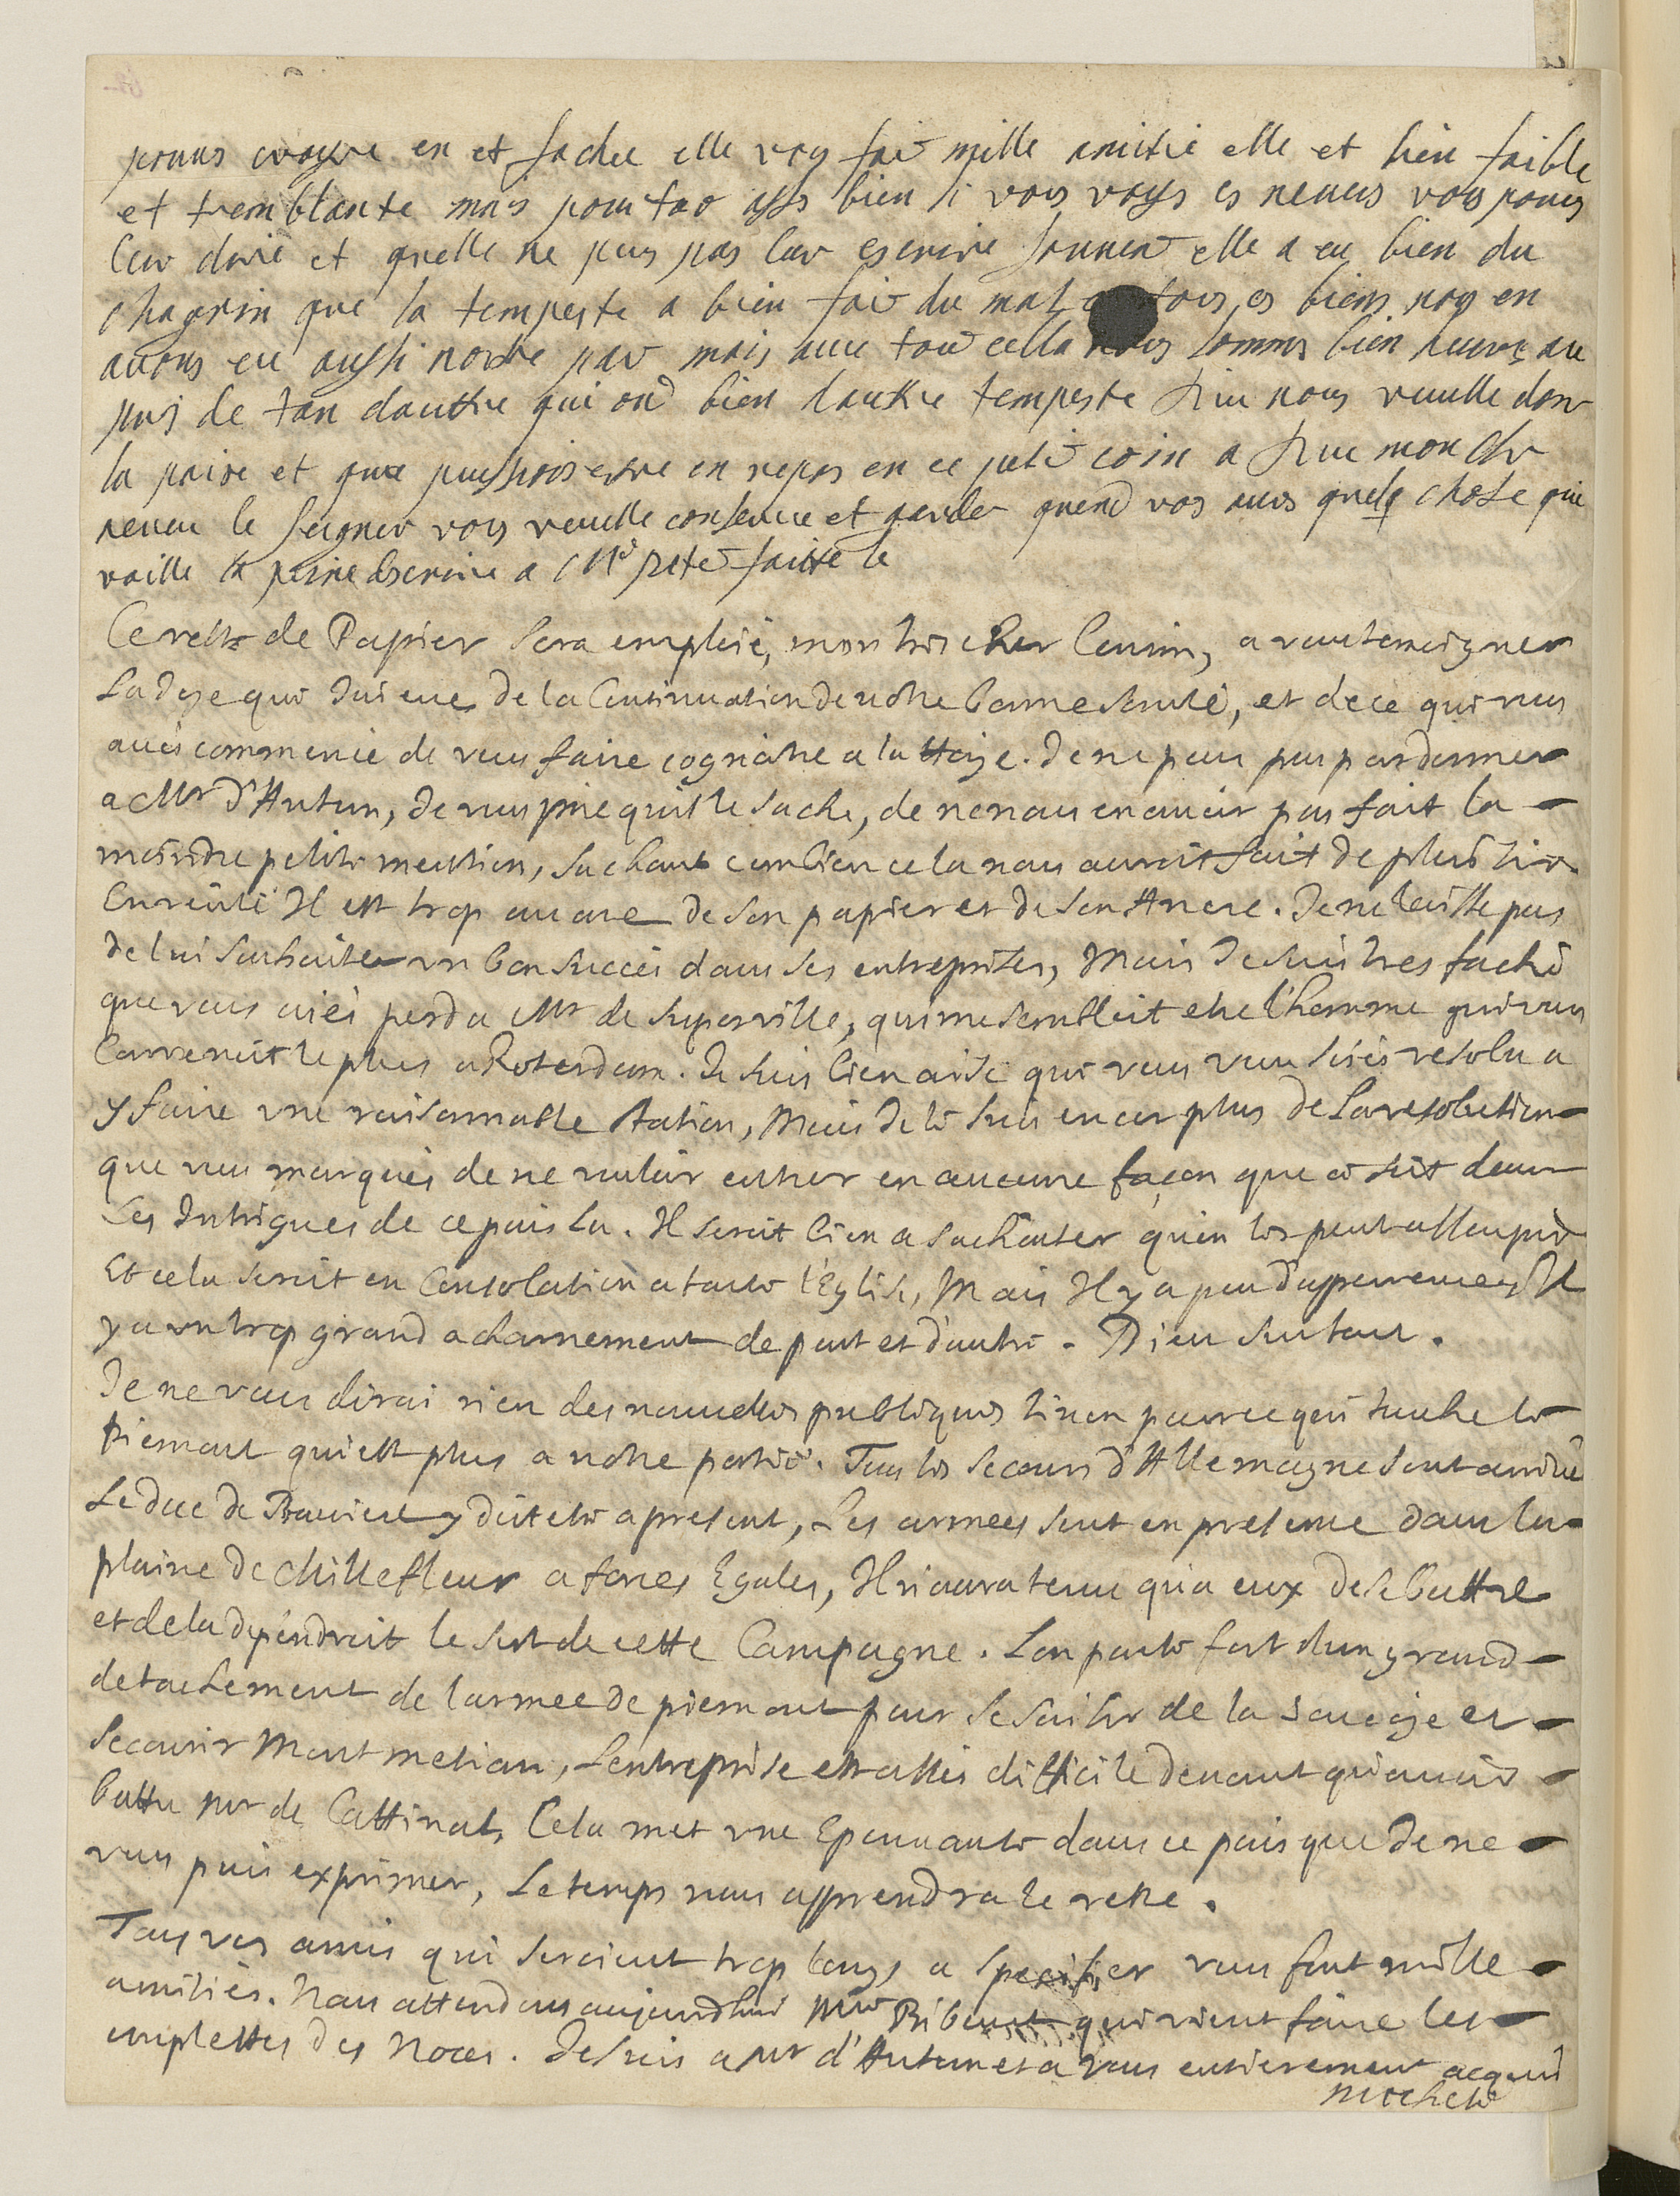 pouus croyre en et fachee elle voy fai mille amitié elle et bien faible
et tremblante mais pourtao asses bien si vous voyes es neueus vous poues
leur dire et quelle ne peus pas leur escrire souuen elle a eu bien du
chagrin que la tempeste a bien fai du mal a tous es biens nos en
auons eu aussi nostre par mais auec tou cella nous sommes bien heureus au
pris de tan dauttre qui ond bien dauttre tempeste Dieu nous veuille doner
la paix et que puissions estre en repos en ce peti coin a Dieu mon cher
neueu le seigneur vous veuille conserue et garder quend vos aures quelq chose que
vaille la peine descrire a Mr faitte le
Ce reste de Papier sera emploié, mon tres cher Cousin, a vous temoigner
La Joye que J'ai eue de la Continuation de votre bonne santé, et de ce que vous
aués commencé de vous faire cognoitre a la Haye. Je ne peus pas pardonner
a Mr d'Autun, Je vous prie qu'il le sache, de ne nous en auoir pas fait la
moindre petite mention, sachant combien cela nous auroit fait de plaisir.
En verité Il est trop auare de son papier et de son Ancre. Je ne laisse pas
de lui souhaiter vn bon succés dans ses entreprises, Mais Je suis tres faché
que vous aiés perdu Mr de Superville, qui me sembloit etre l'homme qui vous
Conuenoit le plus a Roterdam. Je suis bien aise que vous vous soiés resolu a
y faire vne raisonnable station, Mais Je le suis encor plus de la resolution
que vous marqués de ne vouloir entrer en aucune façon que ce soit dans
Les Intrigues de ce pais la. Il seroit bien a souhaiter qu'on les peut assoupir
Et cela seroit en Consolation a toute l'Eglise, Mais Il y a peu d'apparence, Il
y a vn trop grand acharnement de part et d'autre. Dieu sur tout.
Je ne vous dirai rien des nouuelles publiques sinon pour ce qui touche le
Piemont qui est plus a notre portée. Tous les secours d'Allemagne sont arriué
Le duc de Bauiere y doit etre a present, Les armees sont en presence dans la
plaine de Millefleur a forces Egales, Il n'aura tenu qu'a eux de se battre
et de la dependroit le sort de cette Campagne. L'on parle fort d'un grand
detachement de l'armee de piemont pour se saisir de la Sauoye et
secourir Montmelian, L'entreprise est assés difficile deuant qu'auoir
battu Mr de Cattinat, Cela met vne Epouuante dans ce pais que Je ne
vous puis exprimer, Le temps nous apprendra le reste.
Tous vos amis qui seroient trop longs a specifier vous font mille
amitiés. Nous attendons aujourdhui Mr qui vient faire les
emplettes des Noces. Je suis a Mr d'Autun et a vous entierement acquis